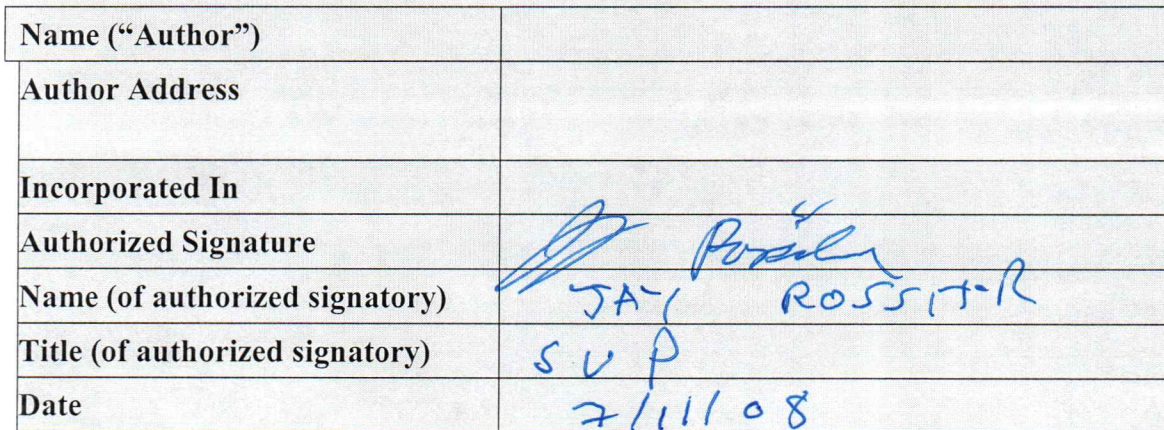 Name (“Author”)
Author Address
Incorporated In
Authorized Signature
Name (of authorized signatory) JAY ROSSITER
Title (of authorized signatory) SVP
Date 7/11/08